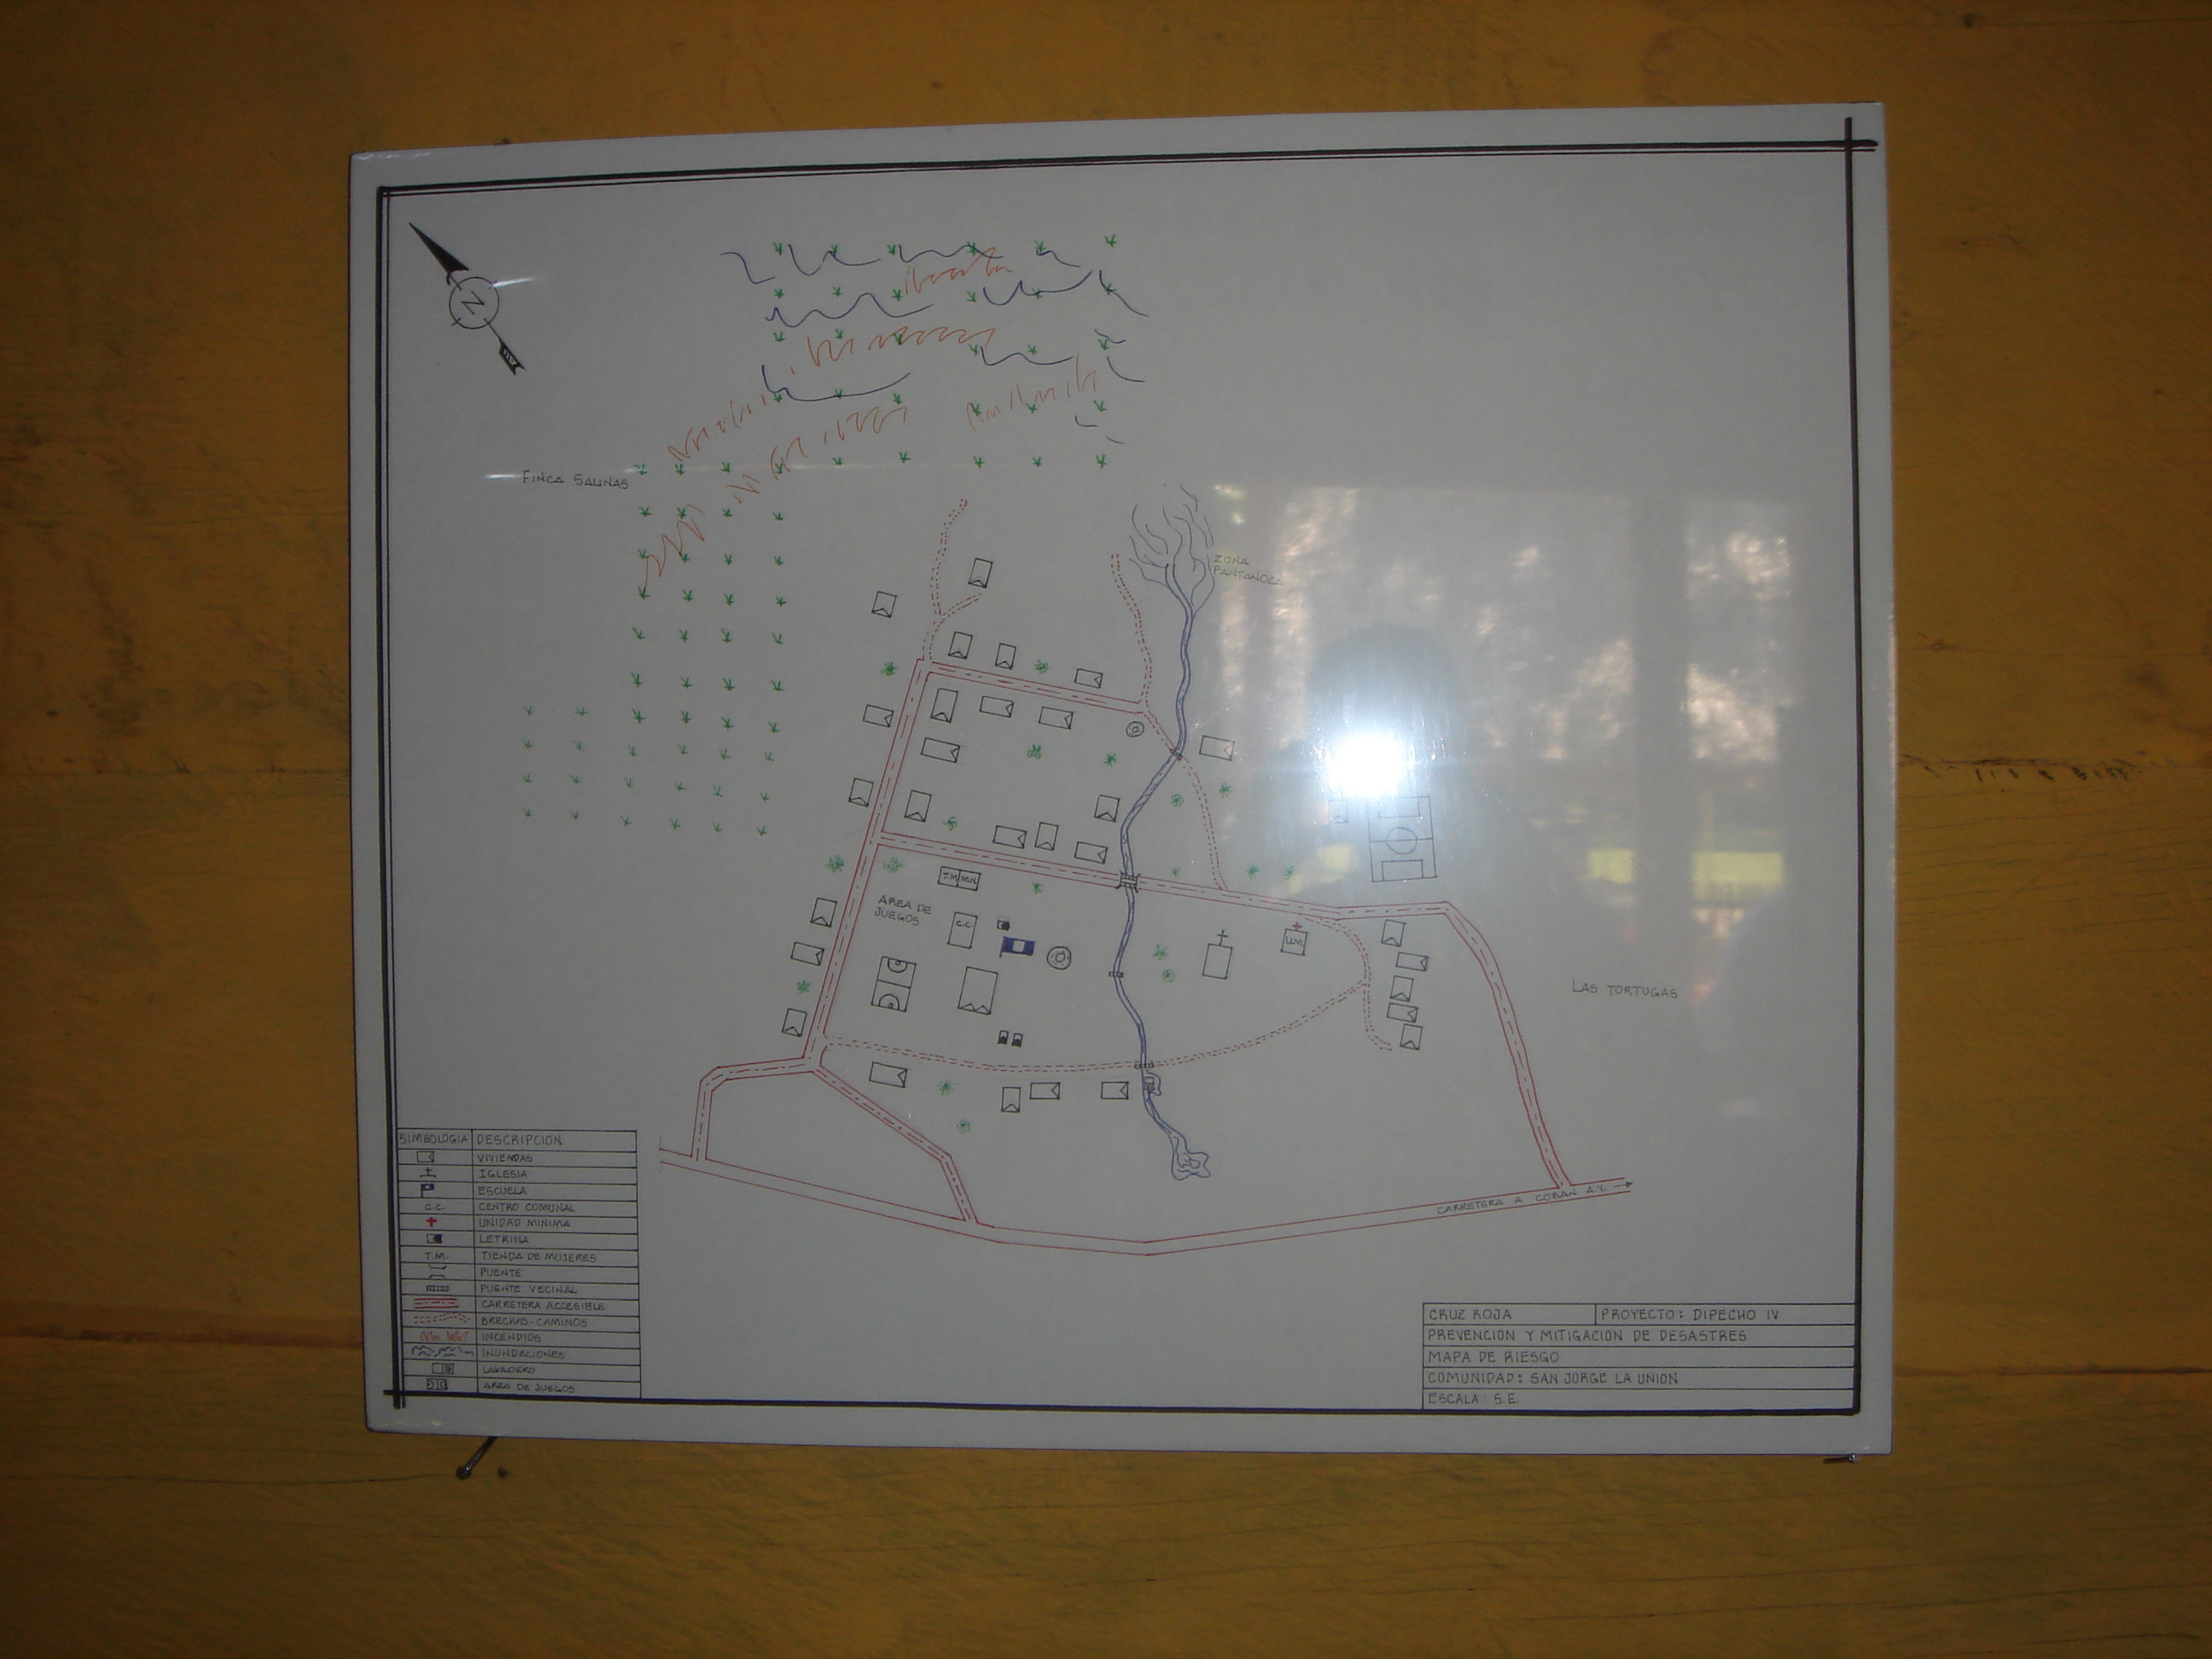 N
FINCA SALINAS
ZONA
PANTANOZA
T.M.
AREA DE
JUEGOS
C.C.
U.M.
LAS TORTUGAS
CARRETERA A COBAN A.V.
SIMBOLOGIA DESCRIPCION
VIVIENDAS
IGLESIA
ESCUELA
C.C. CENTRO COMUNAL
UNIDAD MINIMA
LETRINA
T.M. TIENDA DE MUJERES
PUENTE
PUENTE VECINAL
CARRETERA ACCESIBLE
BRECHAS-CAMINOS
INCENDIOS
INUNDACIONES
LAVADERO
AREA DE JUEGOS
CRUZ ROJA PROYECTO: DIPECHO IV
PREVENCION Y MITIGACION DE DESASTRES
MAPA DE RIESGO
COMUNIDAD: SAN JORGE LA UNION
ESCALA: S.E.